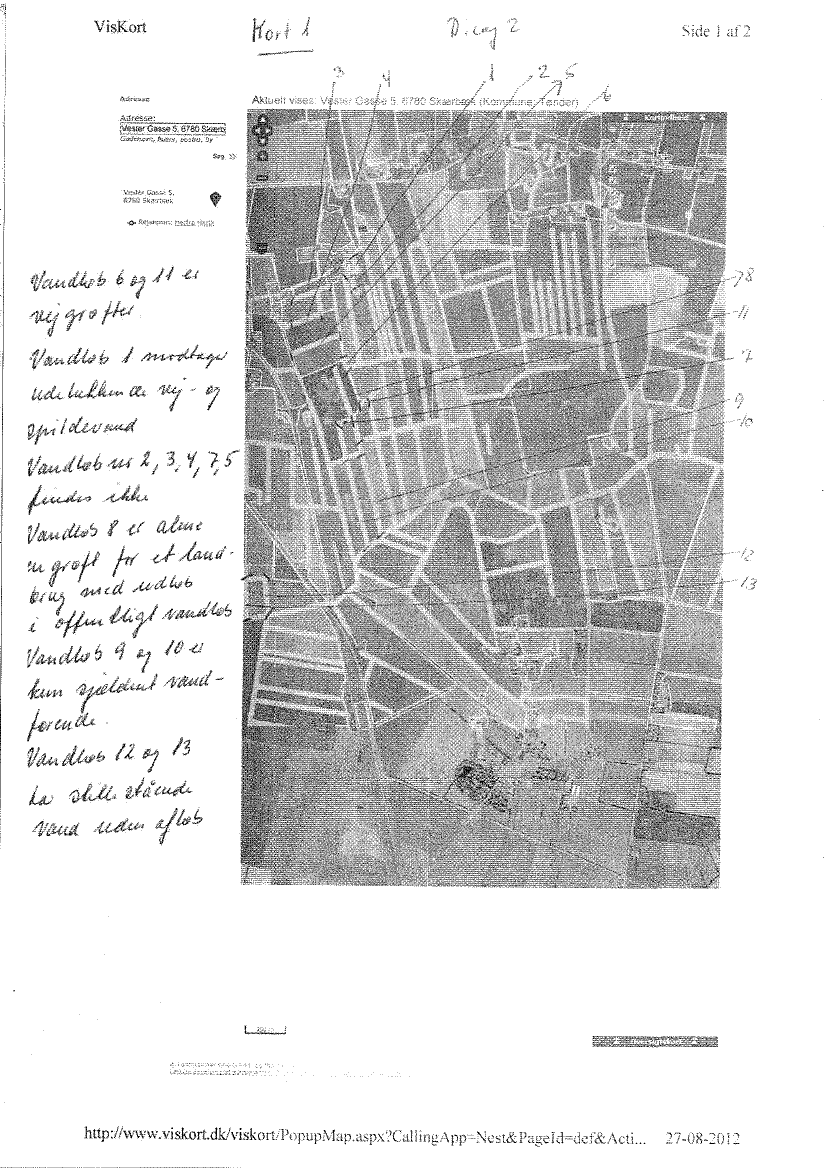 VisKort
Kort 1
2
Side 1 af 2
3
4
1
2
5
6
Adresse
Aktuelt vises: Vester Gasse 5, 6780 Skærbæk (Kommune: Tønder)
Adresse:
Vester Gasse 5, 6780 Skærb
Søg
Vester Gasse 5,
6780 Skærbæk
Vandløb 6 og 11 er
vejgrøfter
Vandløb 1 modtager
udelukkende vej- og
spildevand
Vandløb nr 2, 3, 4, 7, 5
findes ikke
Vandløb 8 er alme
n grøft for et land-
brug med udløb
i offentligt vandløb
Vandløb 9 og 10 er
kun sjældent vand-
førende.
Vandløb 12 og 13
har stille stående
vand uden afløb
8
11
7
9
10
12
13
http://www.viskort.dk/viskort/PopupMap.aspx?CallingApp=Nest&PageId=def&Acti...
27-08-2012